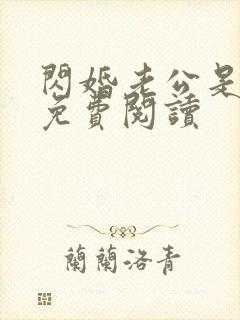 閃婚老公是
免費閱讀
蘭蘭洛青